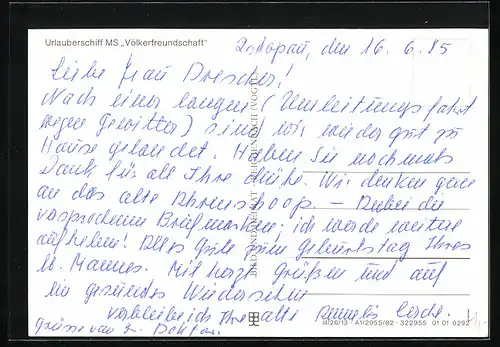 Urlauberschiff MS „Völkerfreundschaft"
Zschopau, den 16. 6. 85
Liebe Frau Drescher!
Nach einer langen (Umleitungsfahrt
wegen Gewitter) sind wir wieder gut zu
Hause gelandet. Haben Sie nochmals
Dank für all Ihre Mühe. Wir denken gern
an das alte Ahrenshoop. – Anbei die
versprochenen Briefmarken; ich werde weitere
aufheben! Alles Gute zum Geburtstag Ihres
lb. Mannes. Mit herzl. Grüßen und auf
ein gesundes Wiedersehn
verbleibe ich Ihre alte
Grüsse von
BILD UND HEIMAT REICHENBACH (VOGTL)
III/26/13 · A1/2955/82 · 322955 01 01 0292